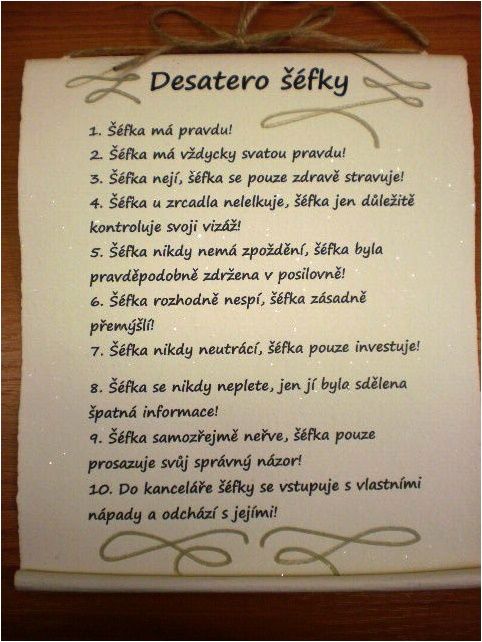 Desatero šéfky
1. Šéfka má pravdu!
2. Šéfka má vždycky svatou pravdu!
3. Šéfka nejí, šéfka se pouze zdravě stravuje!
4. Šéfka u zrcadla nelelkuje, šéfka jen důležitě
kontroluje svoji vizáž!
5. Šéfka nikdy nemá zpoždění, šéfka byla
pravděpodobně zdržena v posilovně!
6. Šéfka rozhodně nespí, šéfka zásadně
přemýšlí!
7. Šéfka nikdy neutrácí, šéfka pouze investuje!
8. Šéfka se nikdy neplete, jen jí byla sdělena
špatná informace!
9. Šéfka samozřejmě neřve, šéfka pouze
prosazuje svůj správný názor!
10. Do kanceláře šéfky se vstupuje s vlastními
nápady a odchází s jejími!